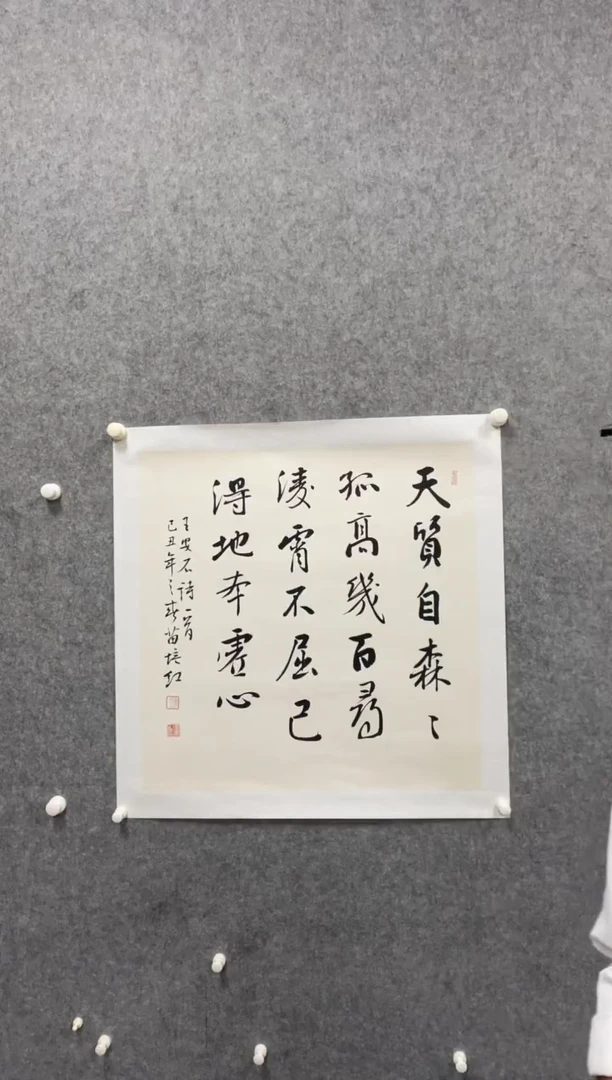 天質自森〻
孤高幾百尋
凌霄不屈己
得地本虛心
王安石诗一首
己丑年之春苗培红